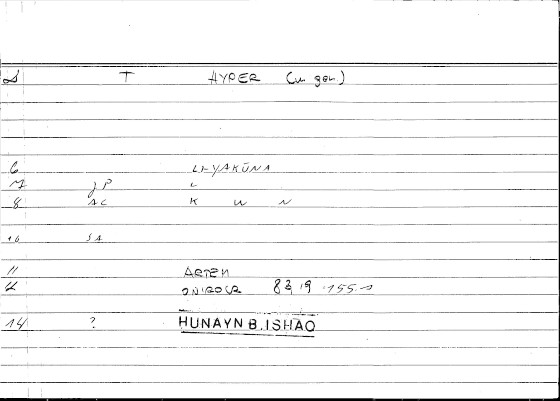 T HYPER (u gen.)
6 LI-YAKŪNA
7 JP L
8 AC K W N
10 SA
11 ARTEM
ONIROCR 83 19 155.1
14 ? HUNAYN B.ISHAQ